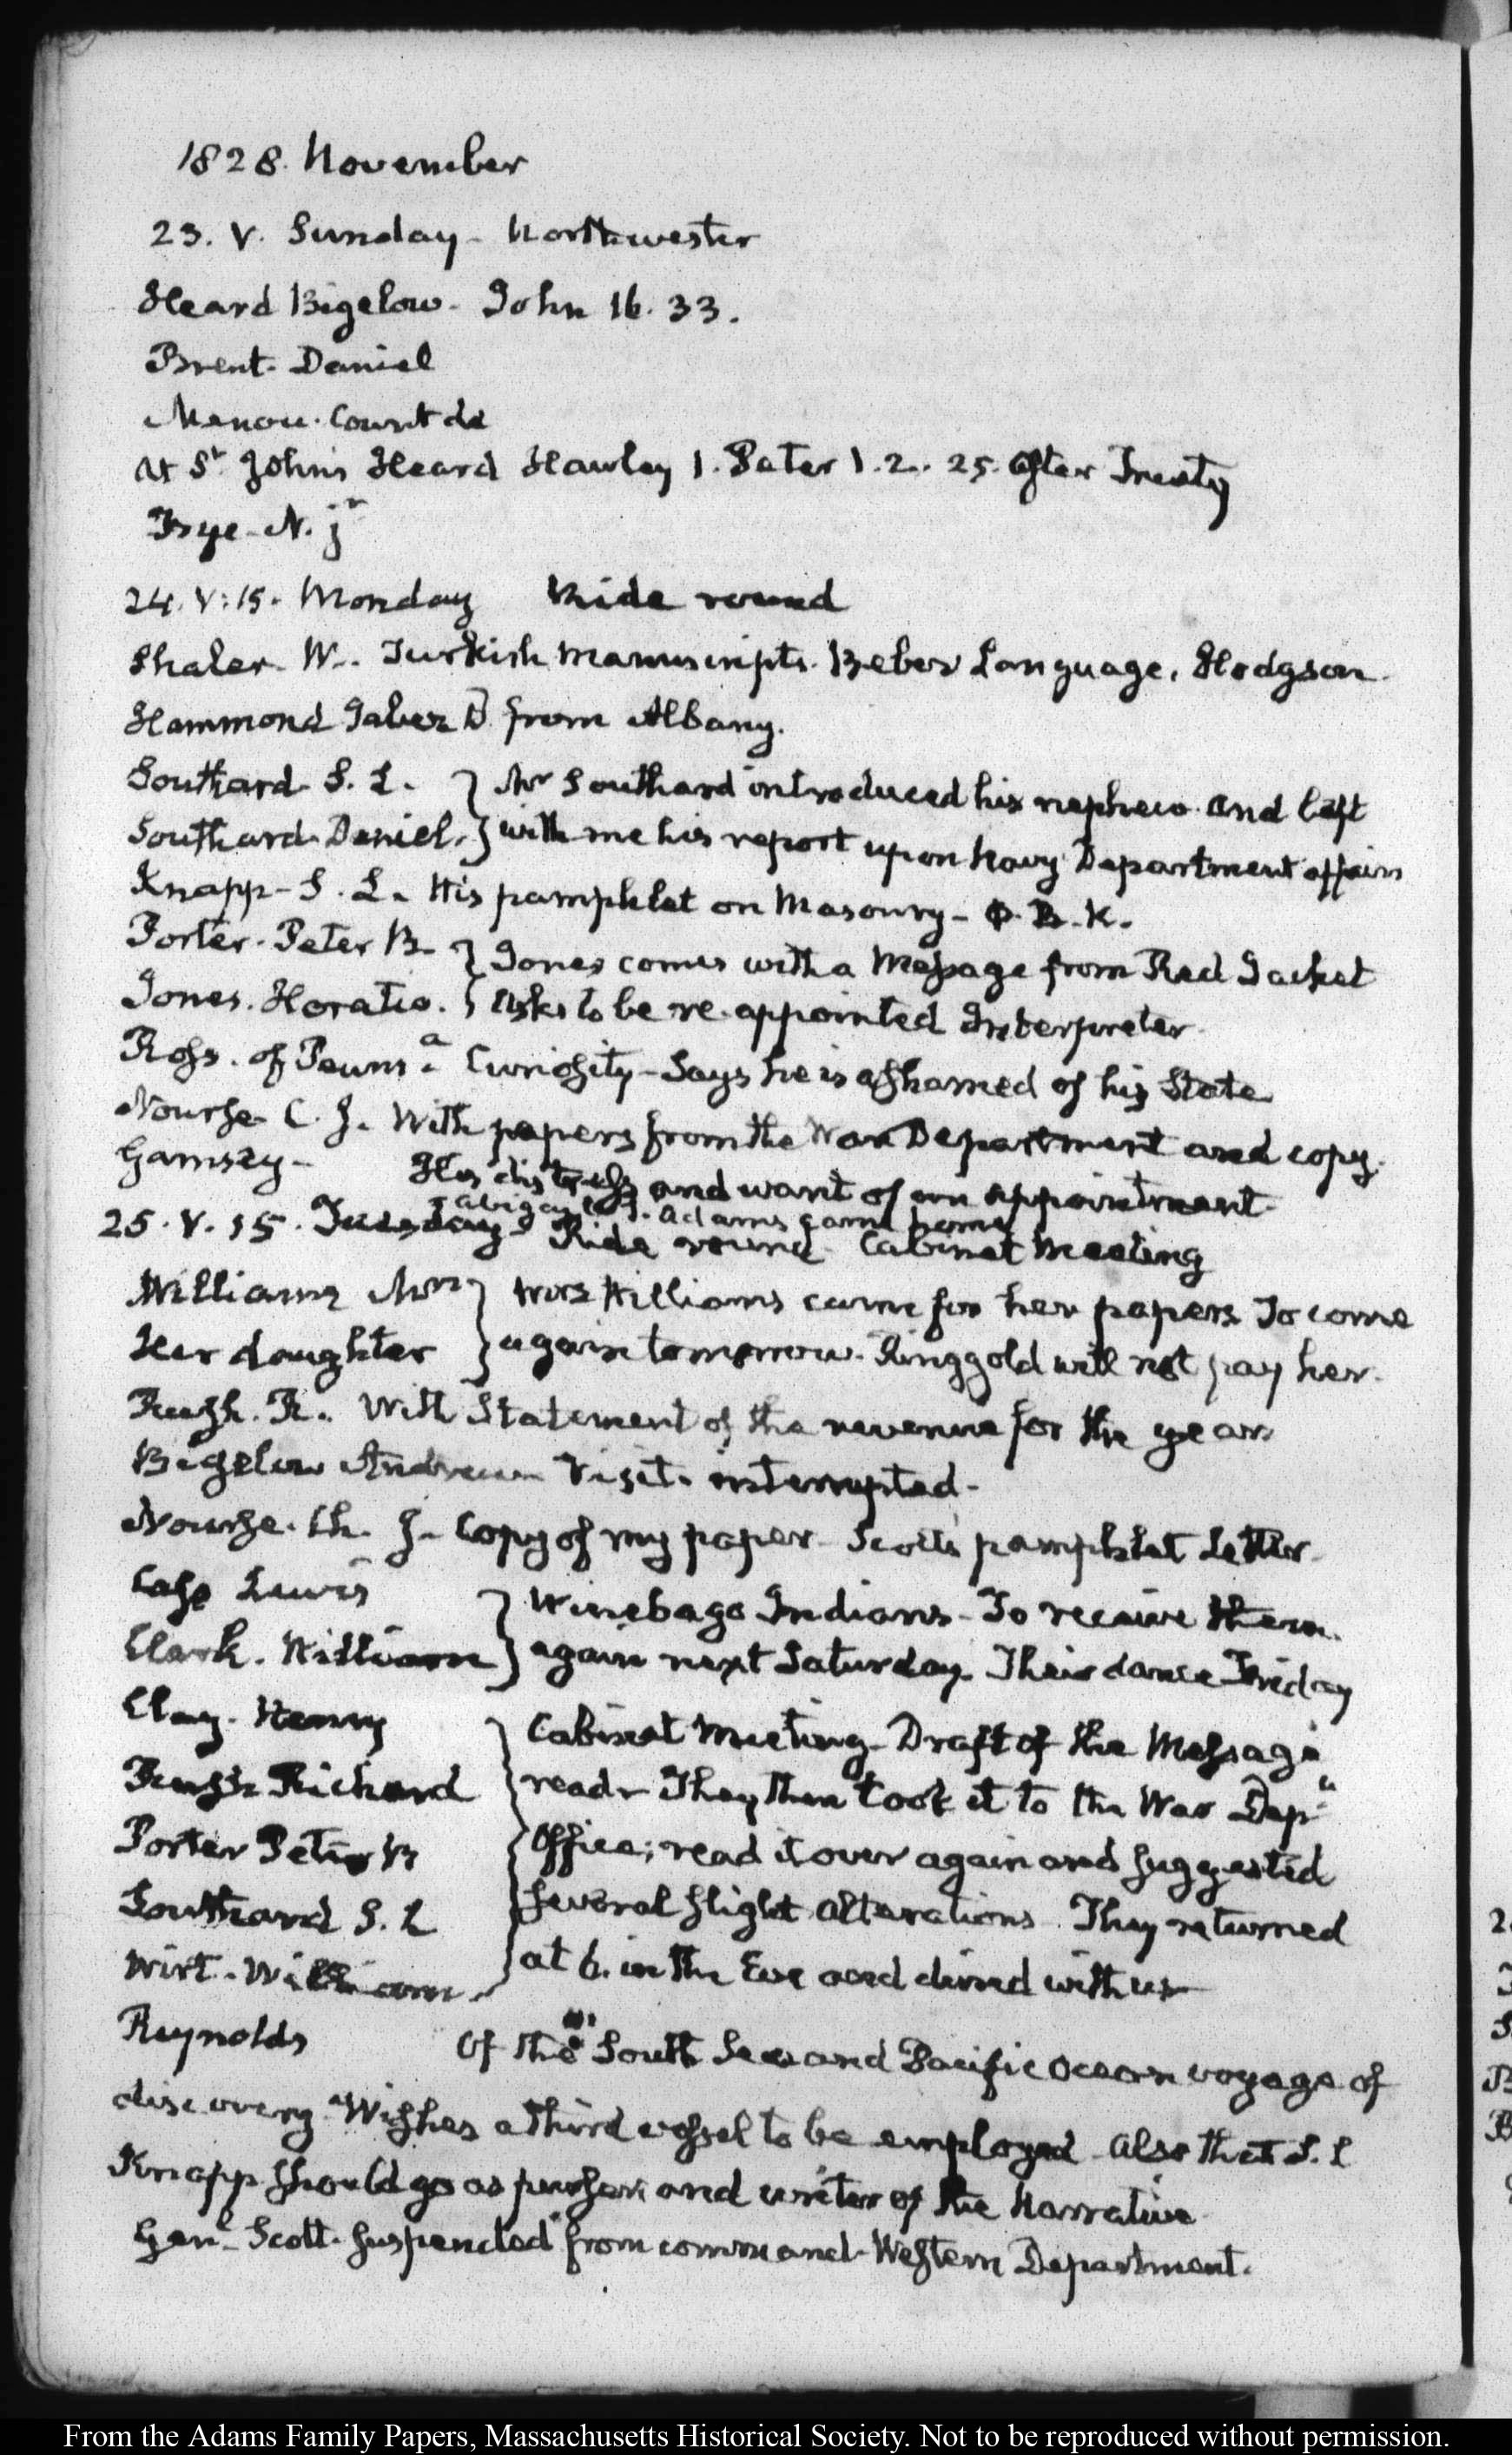 1828. November
23. V. Sunday - Northwester
Heard Bigelow - John 16. 33.
Brent. Daniel
Menou. Count de
At St. John's Heard Hawley 1. Peter 1. 2. 25. after Trinity
Frye - N. jr
24. V:15. Monday Ride round
Shaler - W. Turkish Manuscripts. Beber Language, Hodgson.
Hammond Jabez D from Albany.
Southard. S. L. } Mr Southard introduced his nephew. and left
Southard. Daniel. } with me his report upon Navy Department affairs
Knapp - S. L. His pamphlet on Masonry - Φ. B. K.
Porter. Peter B. } Jones comes with a Message from Red Jacket
Jones. Horatio. } Asks to be re-appointed Interpreter.
Ross. of Penns.a Curiosity - Says he is ashamed of his State
Nourse C. J. With papers from the War Department and copy.
His distress and want of an appointment.
Abigail S. Adams came home
25. V. 15. Tuesday - Ride round. Cabinet Meeting
Williams Mrs } Mrs Williams came for her papers To come
Her daughter } again tomorrow. Ringgold will not pay her.
Rush. R. With Statement of the revenue for the year
Bigelow Andrew Visit. interrupted -
Nourse. Ch. J. Copy of my paper - Scott's pamphlet Letter.
Cass Lewis } Winebago Indians - To receive them.
Clark. William } again next Saturday. Their dance Friday
Clay. Henry } Cabinet Meeting - Draft of the Message
Rush Richard } read - They then took it to the War Dept
Porter Peter B } Office; read it over again and suggested
Southard S. L } several slight alterations. They returned
Wirt. William } at 6. in the Eve and dined with us
Reynolds Of the South Sea and Pacific Ocean voyage of
discovery. Wishes a third vessel to be employed. Also that S. L
Knapp should go as purser and writer of the Narrative.
Genl. Scott. suspended from command. Western Department.